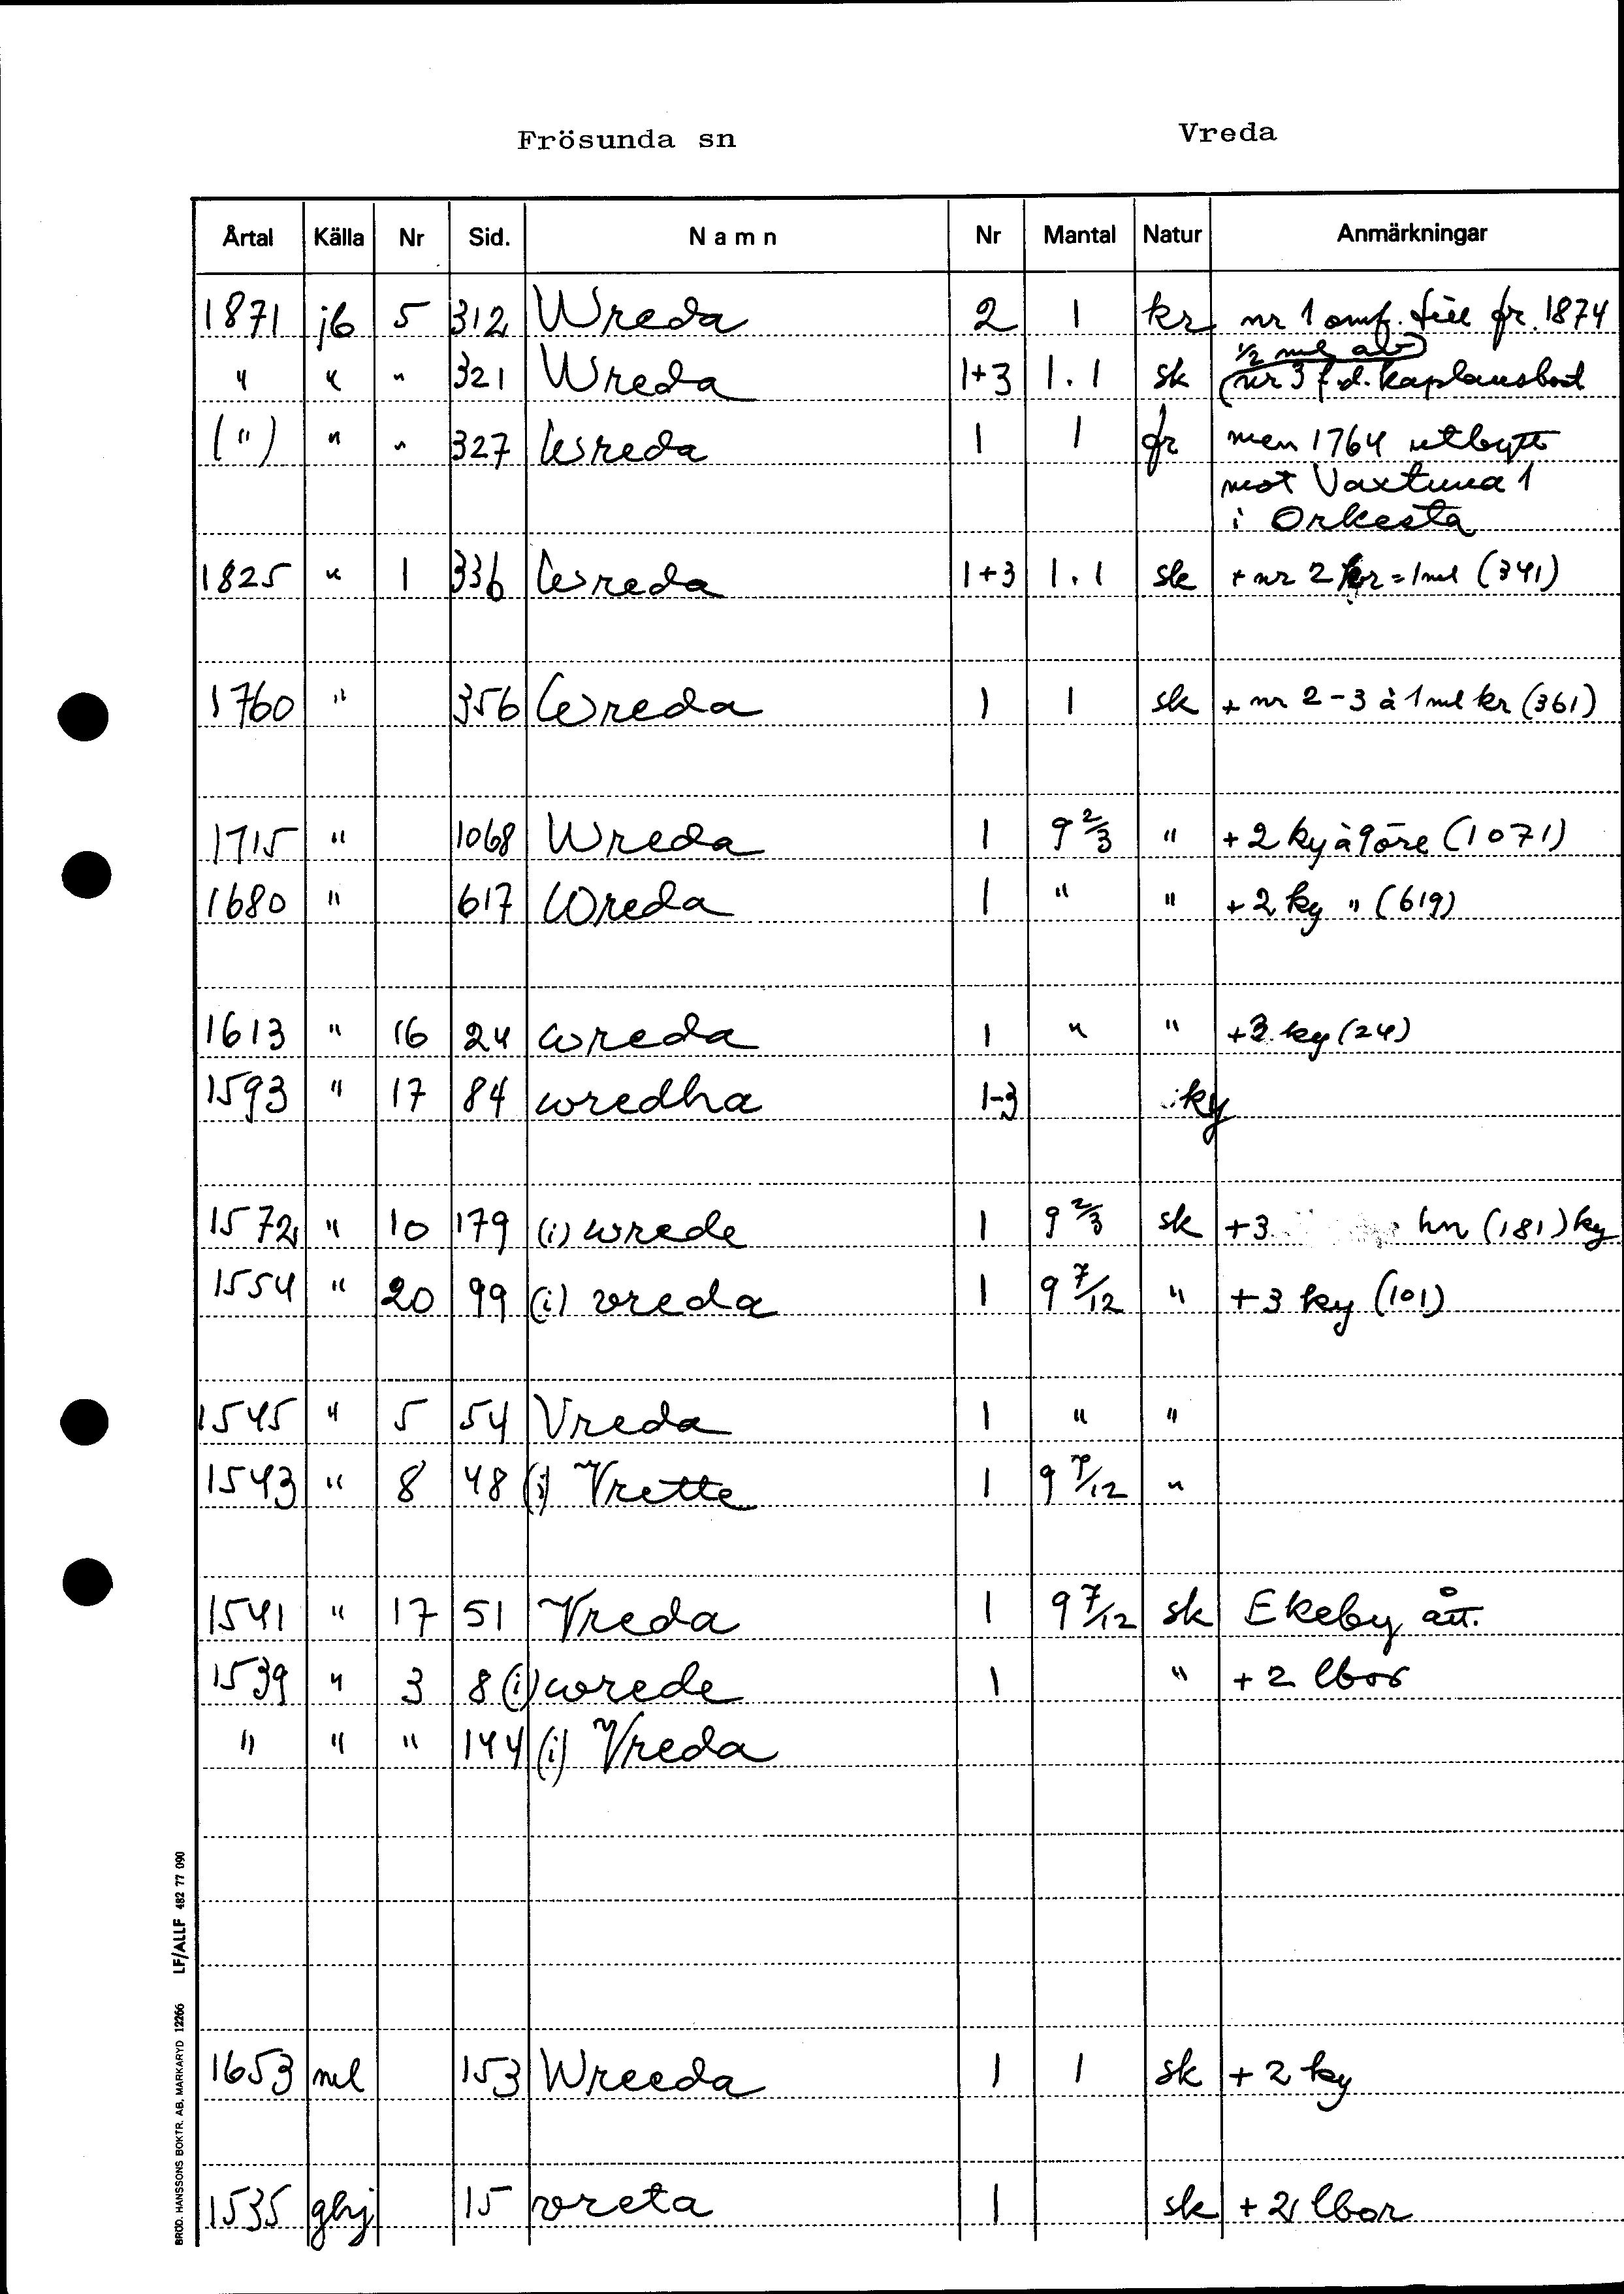 Frösunda sn Vreda
Årtal Källa Nr Sid. Namn Nr Mantal Natur Anmärkningar
1871 jb 5 312 Wreda 2 1 kr nr 1 omf. till fr. 1874
1/2 ml av
" " " 321 Wreda 1+3 1.1 sk (nr 3 f.d. kaplansbost
(") " " 327 Wreda 1 1 fr men 1764 utbytt
mot Vaxtuna 1
i Orkesta
1825 " 1 336 Wreda 1+3 1.1 sk + nr 2 kr = 1 ml (341)
1760 " 356 Wreda 1 1 sk + nr 2-3 à 1 ml kr (361)
1715 " 1068 Wreda 1 9 2/3 " + 2 ky à 9 öre (1071)
1680 " 617 Wreda 1 " " + 2 ky " (619)
1613 " 16 24 wreda 1 " " + 3 ky (24)
1593 " 17 84 wredha 1-3 ky
1572 " 10 179 (i) wrede 1 9 2/3 sk +3 hn (181) ky
1554 " 20 99 (i) vreda 1 9 7/12 " +3 ky (101)
1545 " 5 54 Vreda 1 " "
1543 " 8 48 (i) Vrette 1 9 7/12 "
1541 " 17 51 Vreda 1 9 7/12 sk Ekeby ått.
1539 " 3 8 (i) wrede 1 " + 2 lbor
" " " 144 (i) Vreda
1653 ml 153 Wreeda 1 1 sk + 2 ky
1535 ghj 15 vreta 1 sk + 2 lbor
BROD. HANSSONS BOKTR. AB, MARKARYD 12266 LF/ALLF 482 77 090